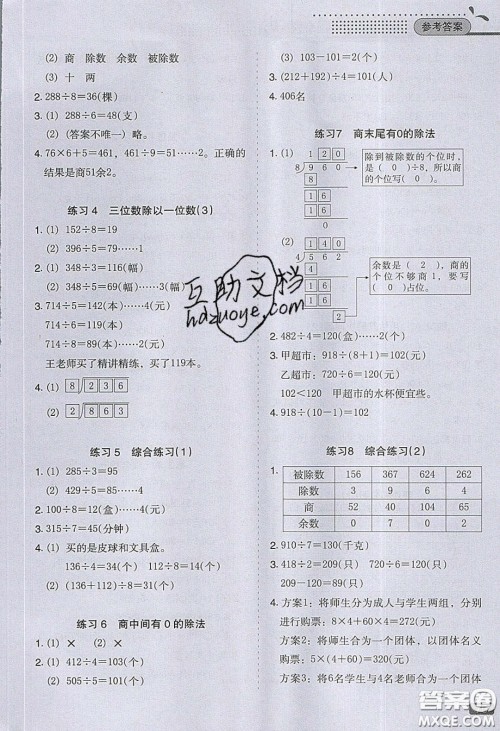 参考答案
(2) 商 除数 余数 被除数
(3) 十 两
2. 288÷8=36(棵)
3. (1) 288÷6=48
(2) (答案不唯一) 略。
4. 76×6+5=461, 461÷9=51……2。正确的
结果是商51余2。
练习 4 三位数除以一位数(3)
1. (1) 152÷8=19
(2) 396÷5=79……1
2. (1) 348÷3=116(幅)
(2) 348÷3=116(幅)
3. 714÷5=142(本)……4(元)
714÷6=119(本)
714÷8=89(本)……2(元)
王老师买了精讲精练, 买了119本。
4. (1) 8)236
(2) 2)863
练习 5 综合练习(1)
1. (1) 285÷3=95
(2) 429÷5=85……4
2. 100÷8=12(盒)……4(元)
3. 315÷7=45(分钟)
4. (1) 买的是皮球和文具盒。
136÷4=34(元) 112÷8=14(元)
(2) (136+112)÷8=31(元)
练习 6 商中间有 0 的除法
1. (1) × (2) ×
2. (1) 412÷4=103(个)
(2) 505÷5=101(个)
(3) 103-101=2(个)
3. (212+192)÷4=101(元)
4. 406名
练习7 商末尾有0的除法
1. (1) 120
8)960
8
16
16
0
除到被除数的个位时,
是( 0 )÷8, 所以
商的个位写( 0 )。
(2) 140
4)562
4
16
16
2
余数是( 2 ), 商的
个位不够商 1, 要写
( 0 )占位。
2. 482÷4=120(盒)……2(元)
3. 甲超市: 918÷(8+1)=102(元)
乙超市: 720÷6=120(元)
102<120 甲超市的水杯便宜些。
4. 918÷(10-1)=102
练习8 综合练习(2)
1. 被除数 156 367 624 262
除数 3 9 6 4
商 52 40 104 65
余数 0 7 0 2
2. 910÷7=130(千克)
3. 418÷2=209(元) 720÷6=120(元)
209-120=89(元)
4. 方案1: 将师生分为成人与学生两组, 分别
进行购票: 8×4+60×4=320(元)
方案2: 将师生合为一个团体, 以团体名义
购票: (60+4)×5=320(元)
方案3: 将6名学生与4名教师合为一个团体
互助文档
hdzuoye.com
答案圈
MXQE.COM